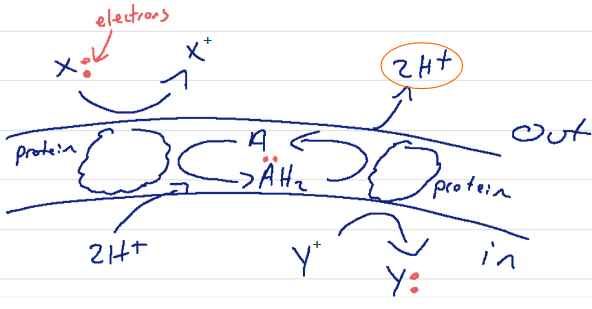 electrons
X:
X⁺
2H⁺
out
protein
A
ÄH₂
protein
2H⁺
Y⁺
Y:
in